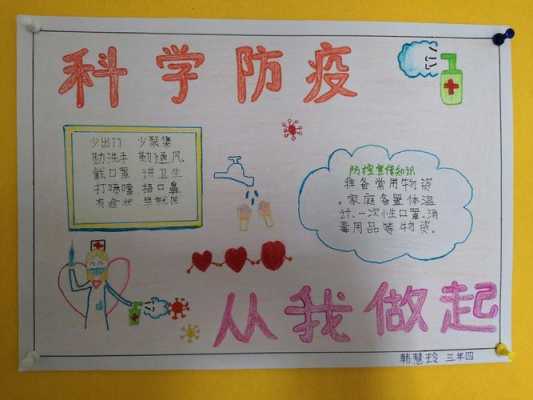 科学防疫
少出门 少聚集
勤洗手 勤通风
戴口罩 讲卫生
打喷嚏 捂口鼻
有症状 早就医
防控宣传知识
准备常用物资
．家庭备置体温
计、一次性口罩、消
毒用品等物资。
从我做起
韩慧玲 三年四